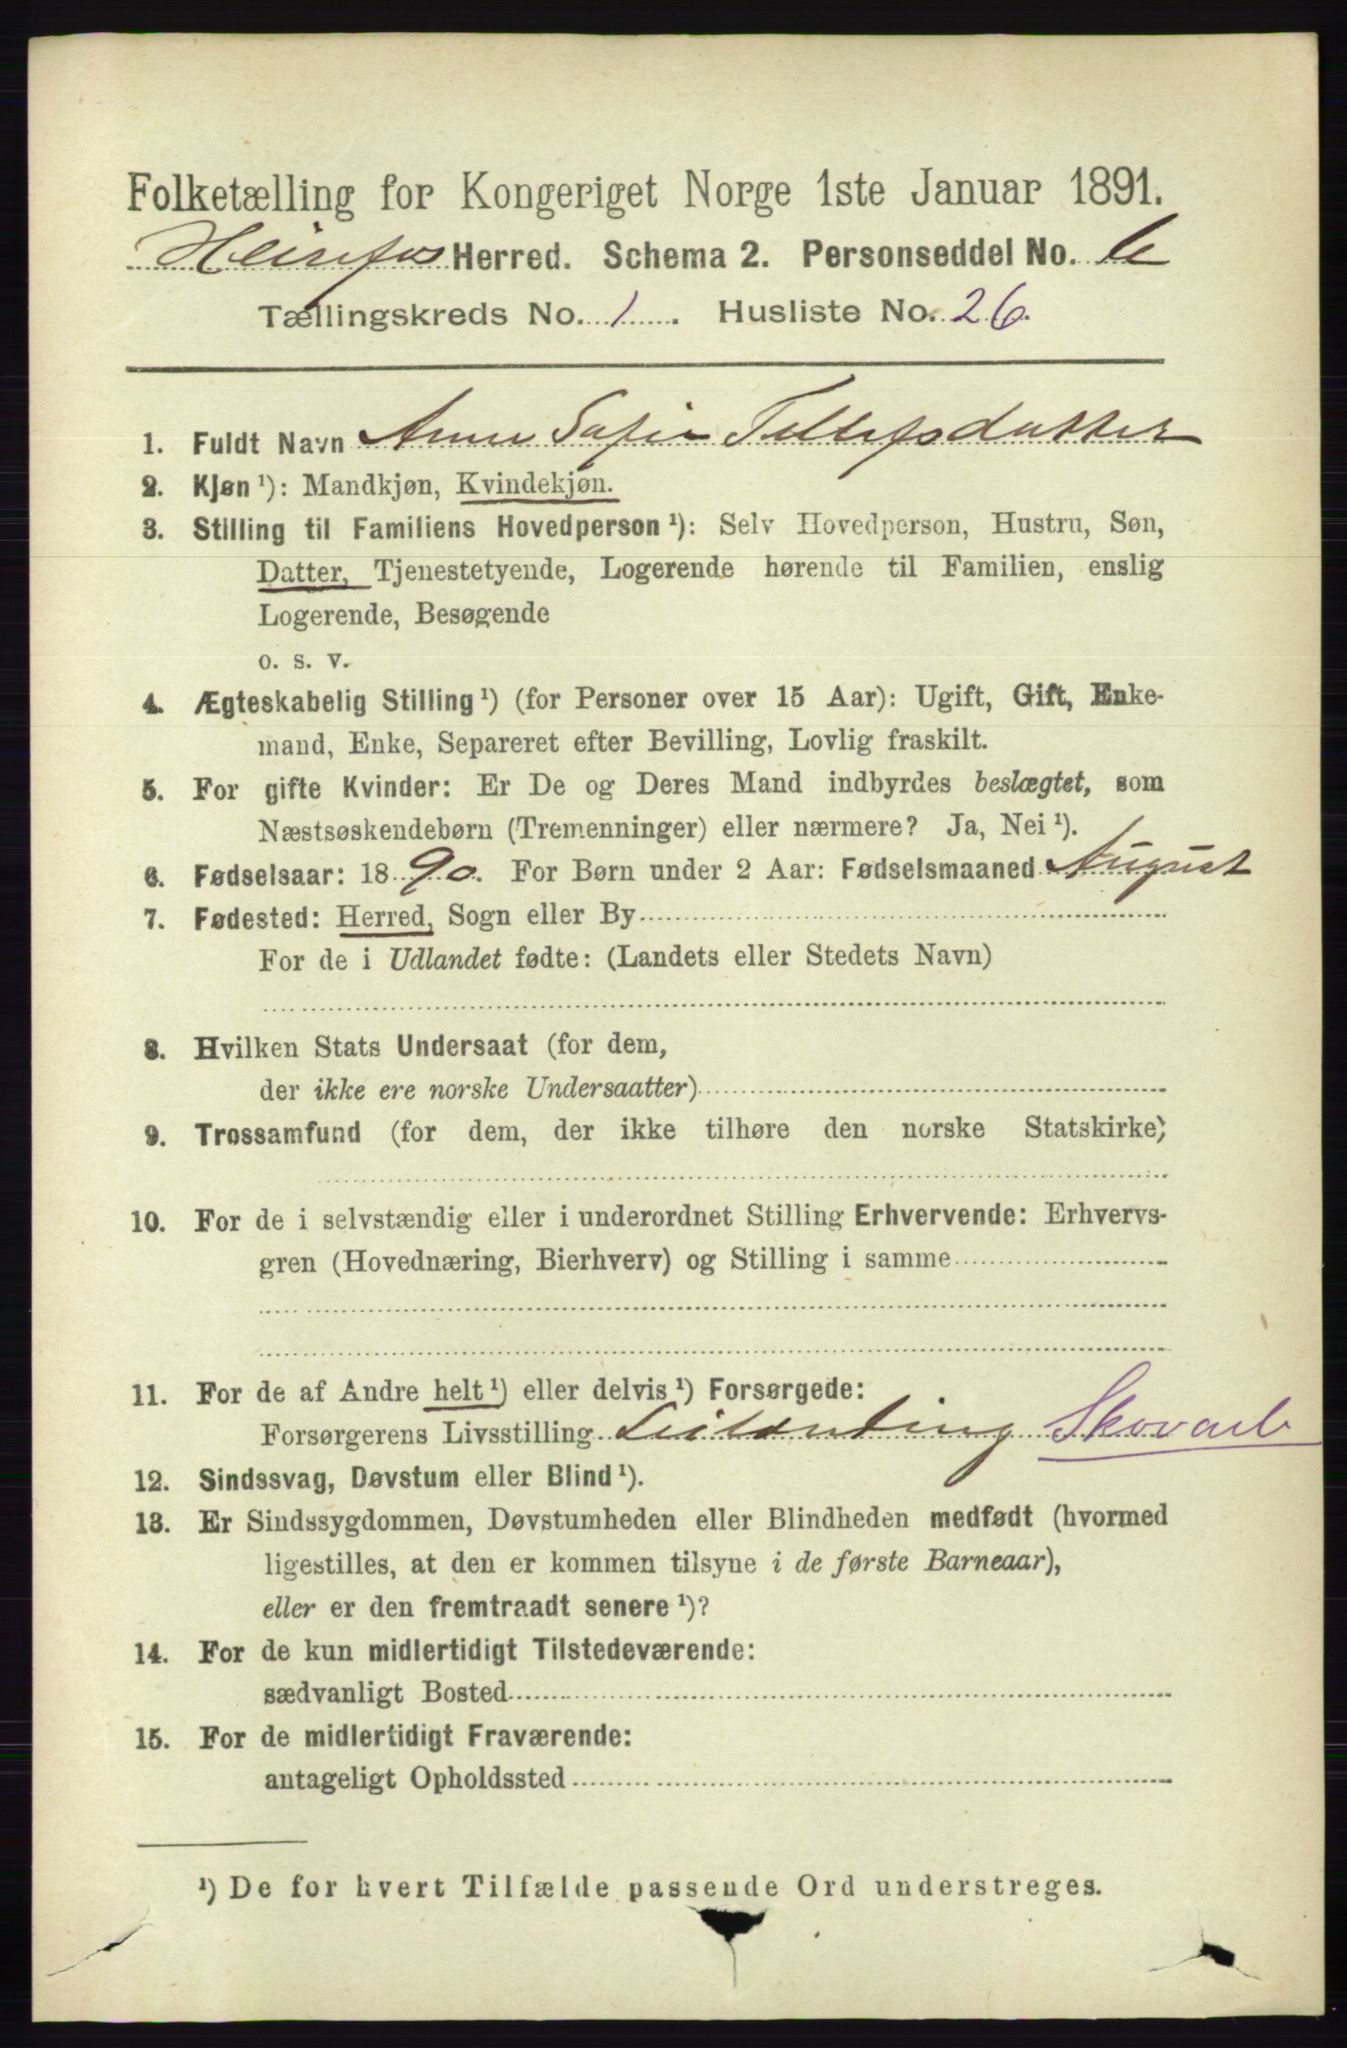 Folketælling for Kongeriget Norge 1ste Januar 1891.
Herred. Schema 2. Personseddel No. 6
Tællingskreds No. 1. Husliste No. 26.
1. Fuldt Navn Anne Sofie Tellefsdatter
2. Kjøn ¹): Mandkjøn, Kvindekjøn.
3. Stilling til Familiens Hovedperson ¹): Selv Hovedperson, Hustru, Søn,
Datter, Tjenestetyende, Logerende hørende til Familien, enslig
Logerende, Besøgende
o. s. v.
4. Ægteskabelig Stilling ¹) (for Personer over 15 Aar): Ugift, Gift, Enke-
mand, Enke, Separeret efter Bevilling, Lovlig fraskilt.
5. For gifte Kvinder: Er De og Deres Mand indbyrdes beslægtet, som
Næstsøskendebørn (Tremenninger) eller nærmere? Ja, Nei ¹).
6. Fødselsaar: 1890. For Børn under 2 Aar: Fødselsmaaned August
7. Fødested: Herred, Sogn eller By
For de i Udlandet fødte: (Landets eller Stedets Navn)
8. Hvilken Stats Undersaat (for dem,
der ikke ere norske Undersaatter)
9. Trossamfund (for dem, der ikke tilhøre den norske Statskirke)
10. For de i selvstændig eller i underordnet Stilling Erhvervende: Erhvervs-
gren (Hovednæring, Bierhverv) og Stilling i samme
11. For de af Andre helt ¹) eller delvis ¹) Forsørgede:
Forsørgerens Livsstilling Leilænding Skovarb
12. Sindssvag, Døvstum eller Blind ¹).
13. Er Sindssygdommen, Døvstumheden eller Blindheden medfødt (hvormed
ligestilles, at den er kommen tilsyne i de første Barneaar),
eller er den fremtraadt senere ¹)?
14. For de kun midlertidigt Tilstedeværende:
sædvanligt Bosted
15. For de midlertidigt Fraværende:
antageligt Opholdssted
¹) De for hvert Tilfælde passende Ord understreges.